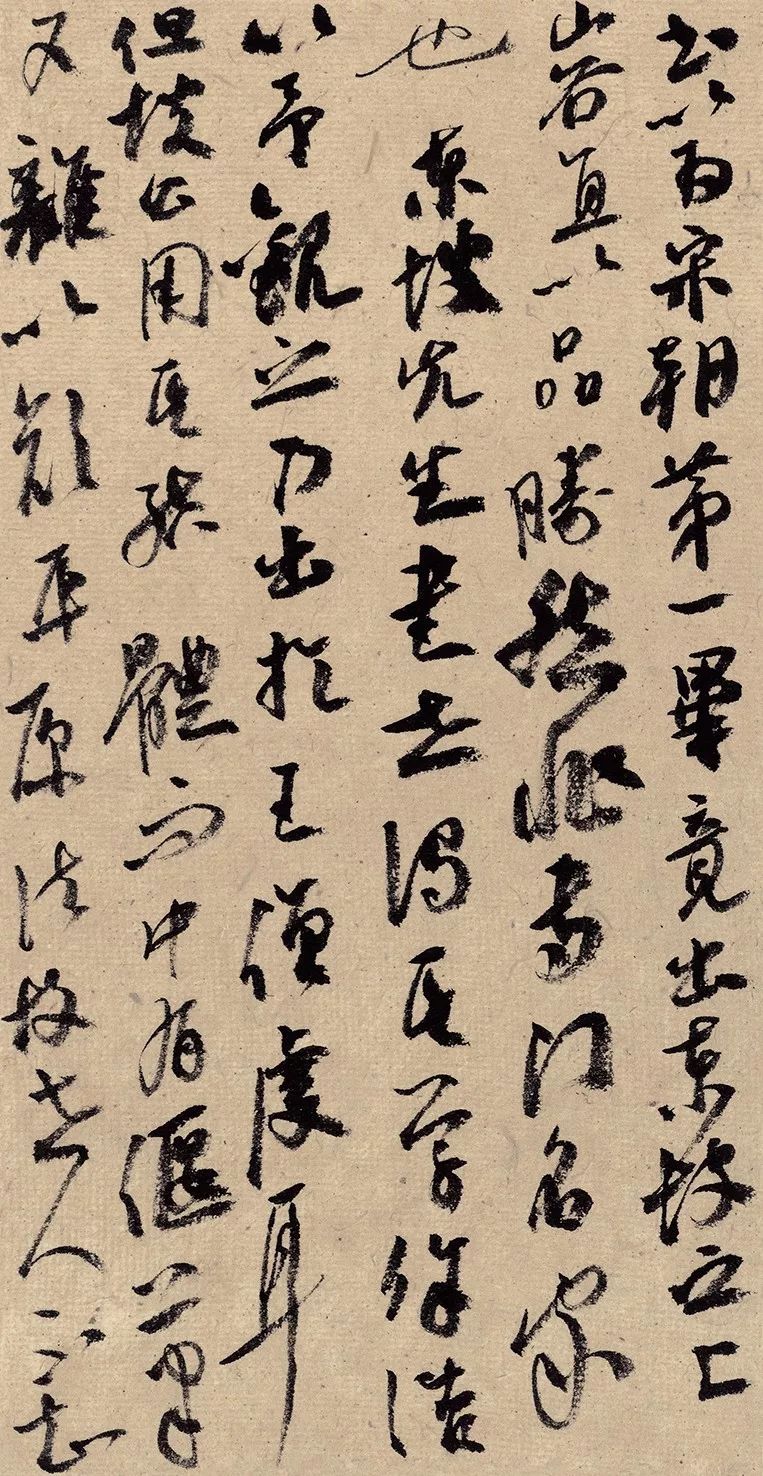 書以為宋朝第一畢竟出東坡之上
山谷直以品勝然非專門名家
也 東坡先生書世謂其學徐浩
以予觀之乃出於王僧虔耳
但坡公用其結體而中有偃筆
又雜以顏平原法故世人不知